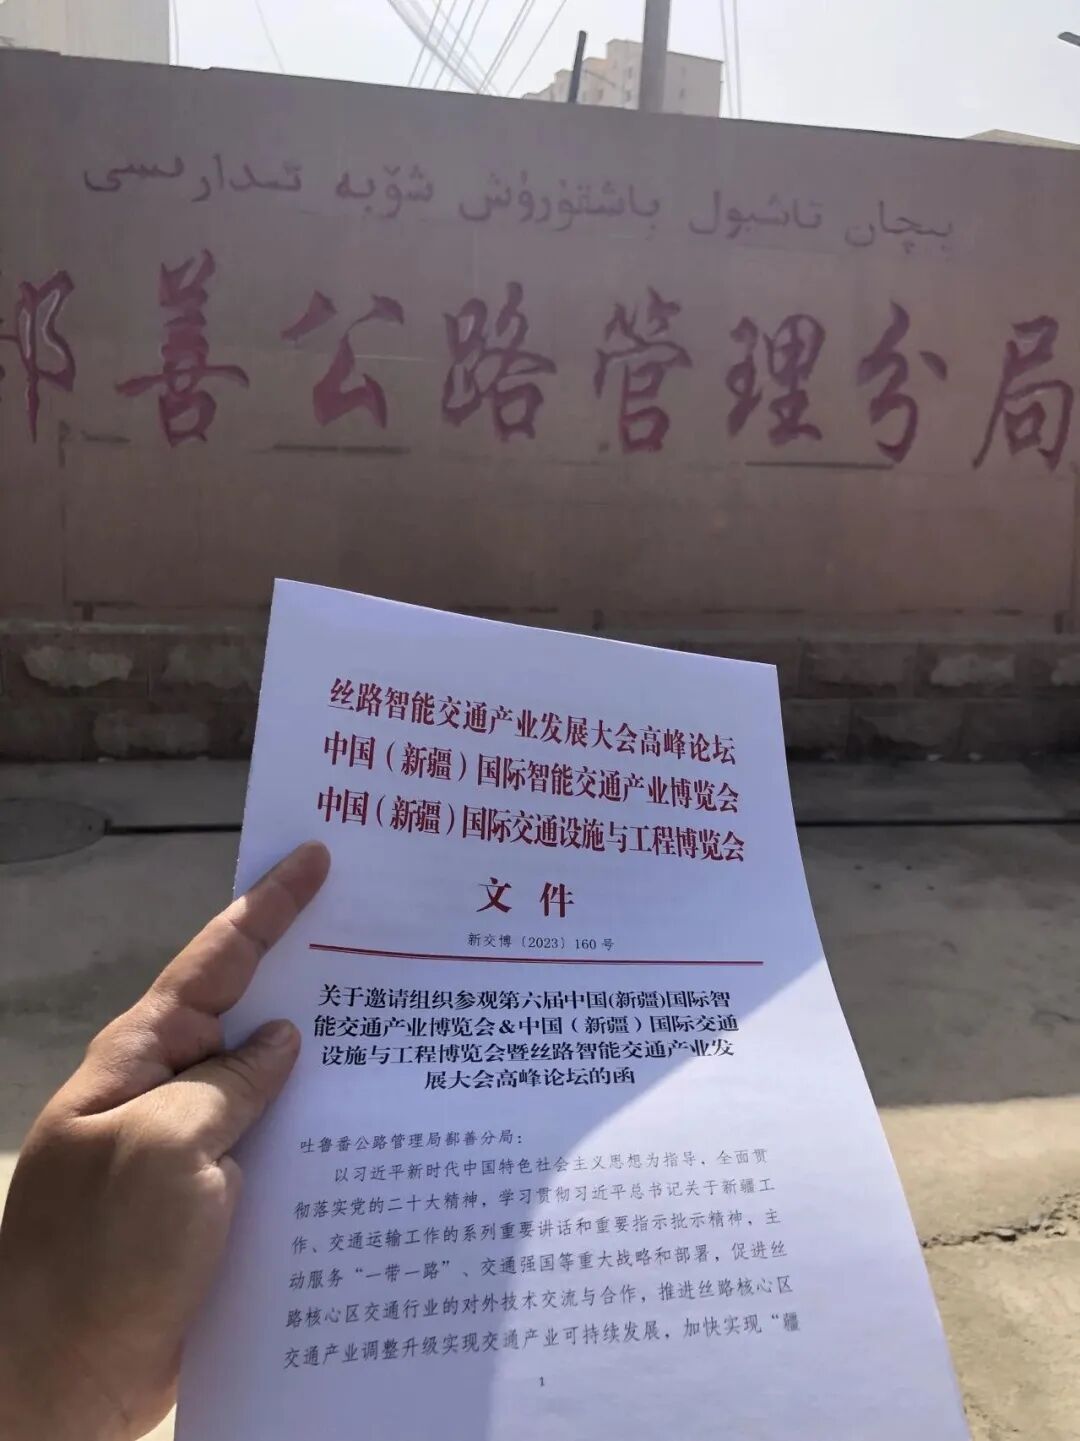 پىچان تاشيول باشقۇرۇش شۆبە ئىدارىسى
鄯善公路管理分局
丝路智能交通产业发展大会高峰论坛
中国（新疆）国际智能交通产业博览会
中国（新疆）国际交通设施与工程博览会
文件
新交博〔2023〕160号
关于邀请组织参观第六届中国(新疆)国际智
能交通产业博览会&中国（新疆）国际交通
设施与工程博览会暨丝路智能交通产业发
展大会高峰论坛的函
吐鲁番公路管理局鄯善分局：
以习近平新时代中国特色社会主义思想为指导，全面贯
彻落实党的二十大精神，学习贯彻习近平总书记关于新疆工
作、交通运输工作的系列重要讲话和重要指示批示精神，主
动服务“一带一路”、交通强国等重大战略和部署，促进丝
路核心区交通行业的对外技术交流与合作，推进丝路核心区
交通产业调整升级实现交通产业可持续发展，加快实现“疆
1